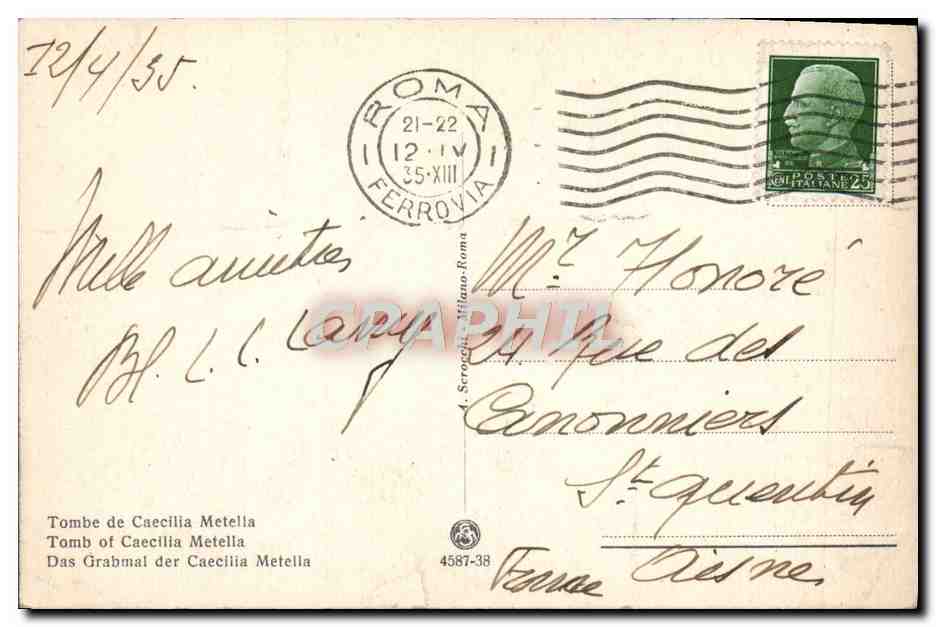 12/4/35.
ROMA
21-22
12·IV
35·XIII
FERROVIA
POSTE
ITALIANE 25
Mille amitiés
Mr. Honoré
24 Rue des
Canonniers
St. Quentin
Aisne
France
CPARPHIL
A. Scrocchi-Milano-Roma
Tombe de Caecilia Metella
Tomb of Caecilia Metella
Das Grabmal der Caecilia Metella
4587-38